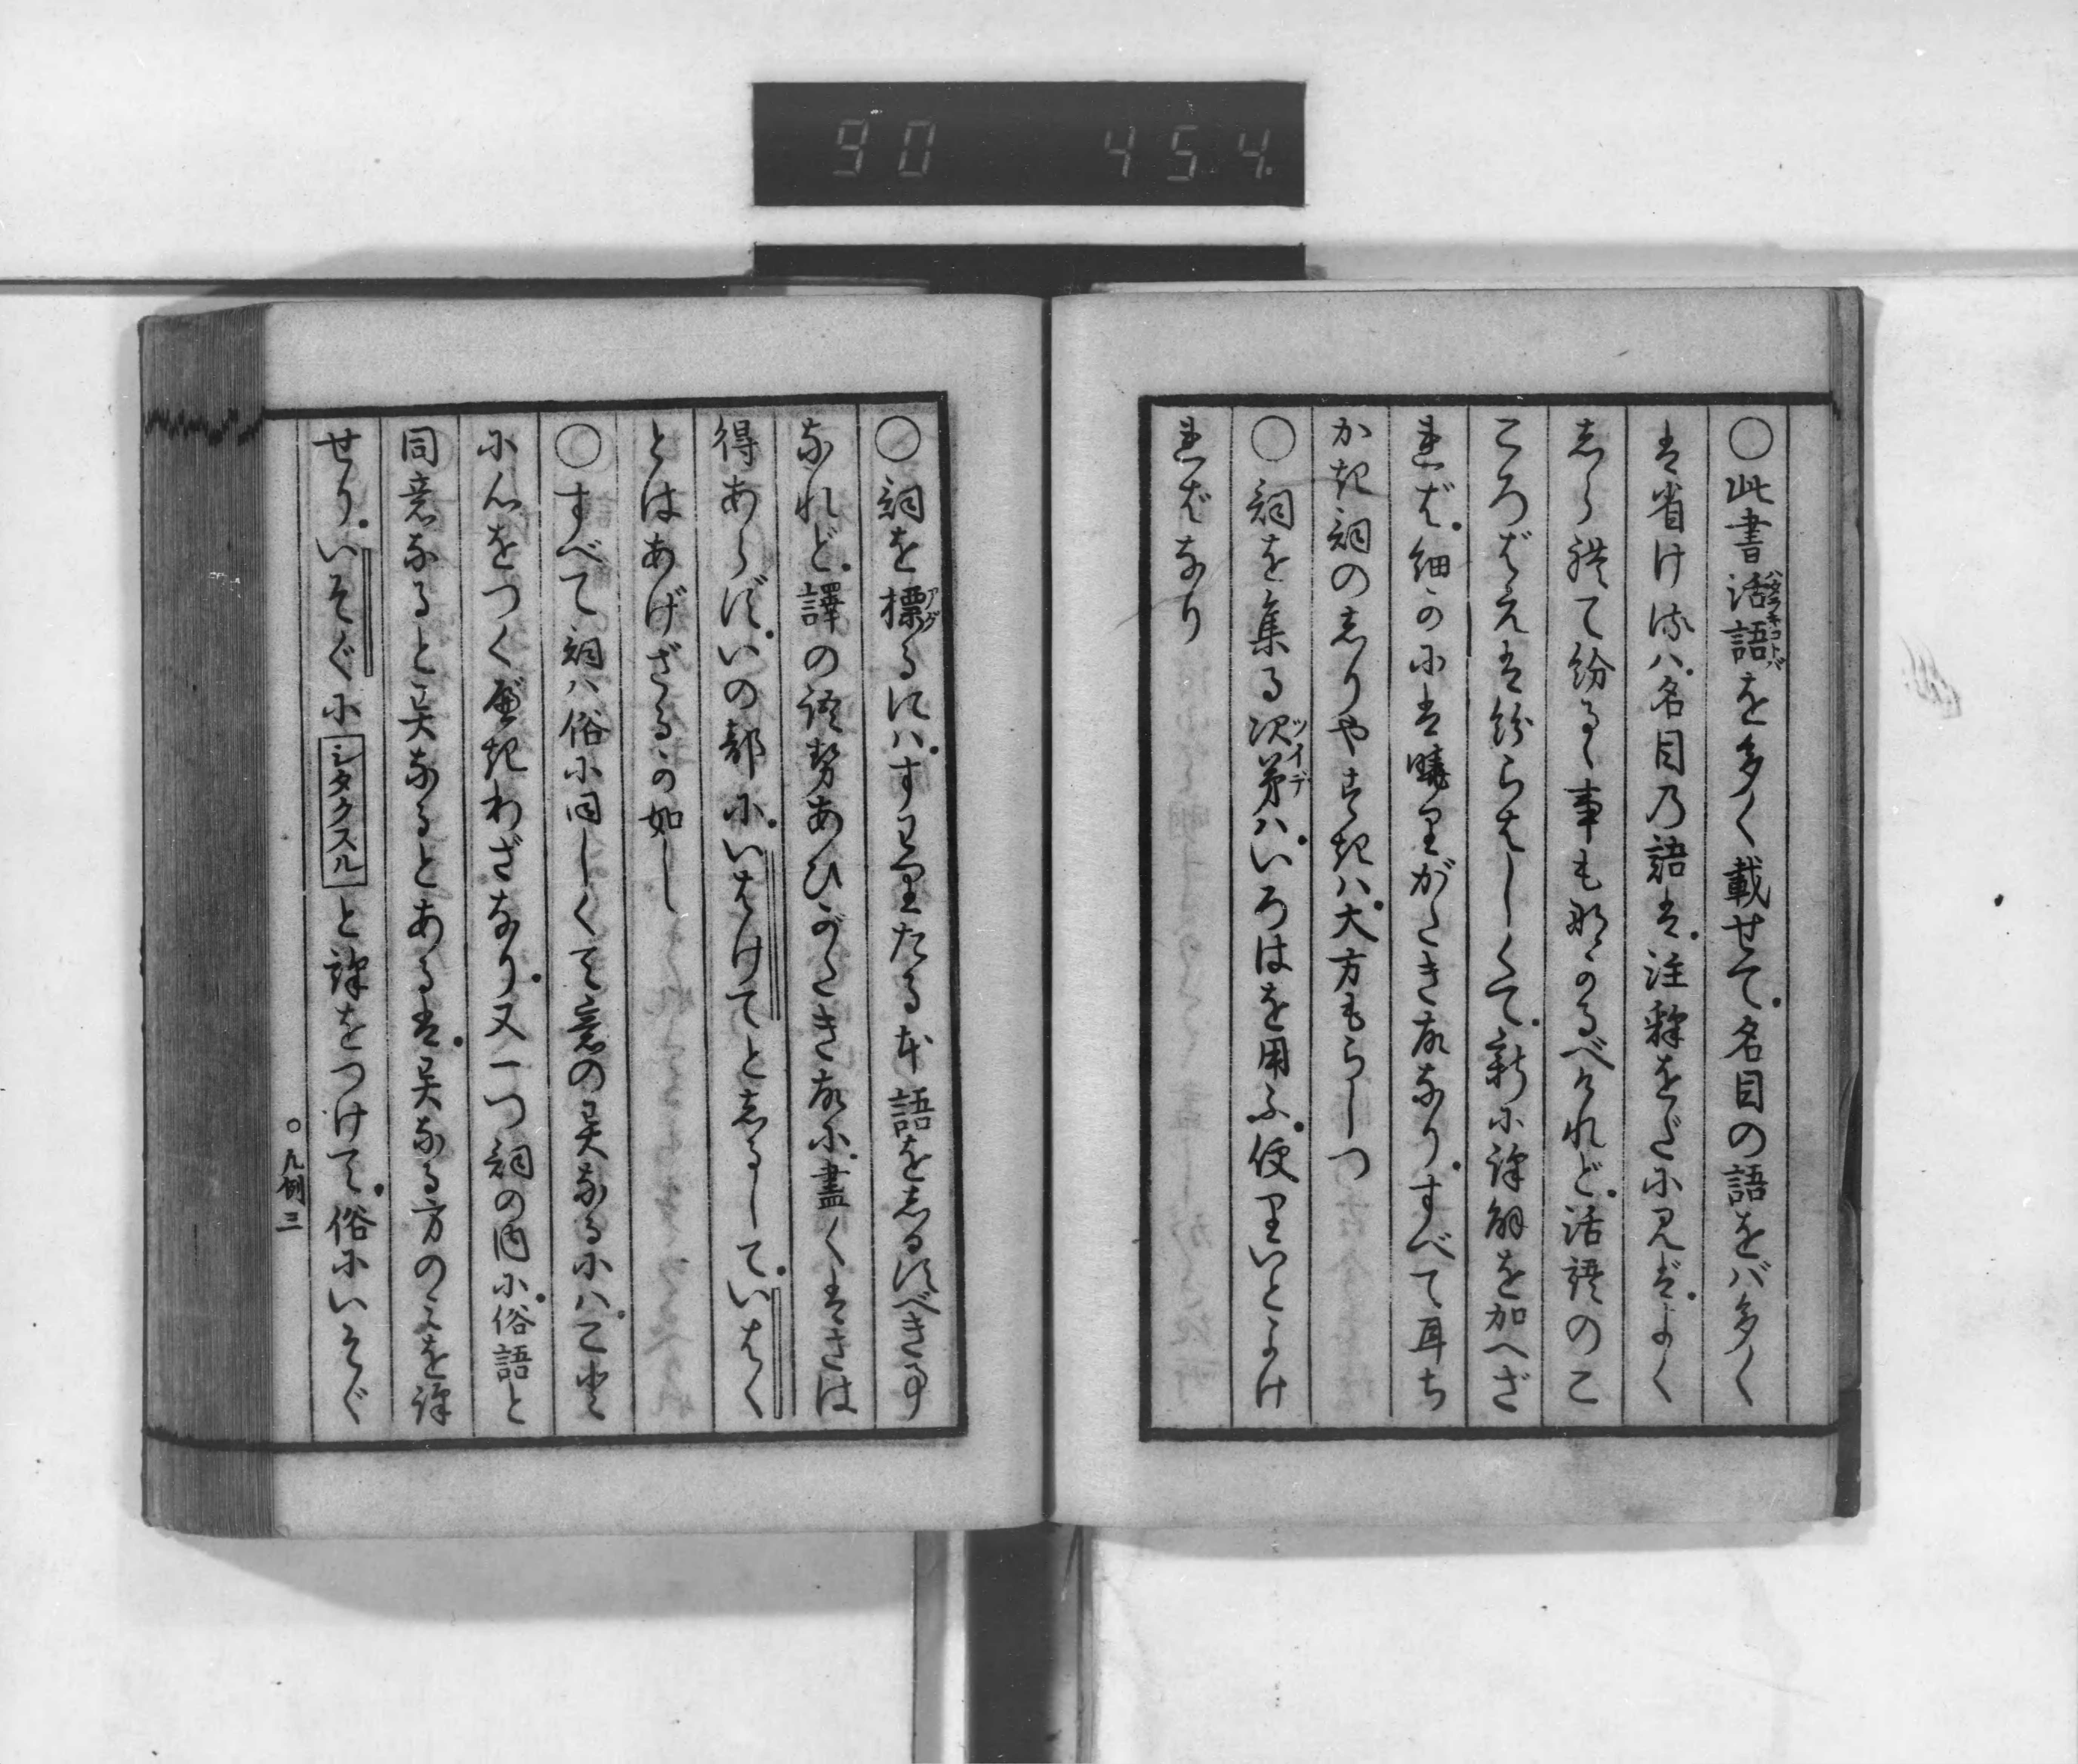 90 454
○此書活語を多く載せて名目の語をバ多く
ハタラキコトバ
は省けるハ名目の語は注釋をだに見ばよく
しられて紛るゝ事も那かるべけれど活語のこ
ころばえは紛らはしくて新に譯解を加へざ
れば細かには曉りがたき故なりすべて耳ち
かき詞のしりやすきハ大方もらしつ
○詞を集る次第ハいろはを用ふ便りいとよけ
ツイデ
ればなり
○詞を標るにハすわりたる本語をしるすべき事
アグ
なれど譯の語勢あひがたき故に盡くはさは
得あらずいの部にいはけてとしるしていはく
とはあげざるか如し
○すべて詞ハ俗に同しくて意の異なるにハこと
に心をつくべきわざなり又一つ詞の内に俗語と
同意なると異なるとあるは異なる方のみを譯
せりいそぐにシタクスルと譯をつけて俗にいそぐ
○凡例 三